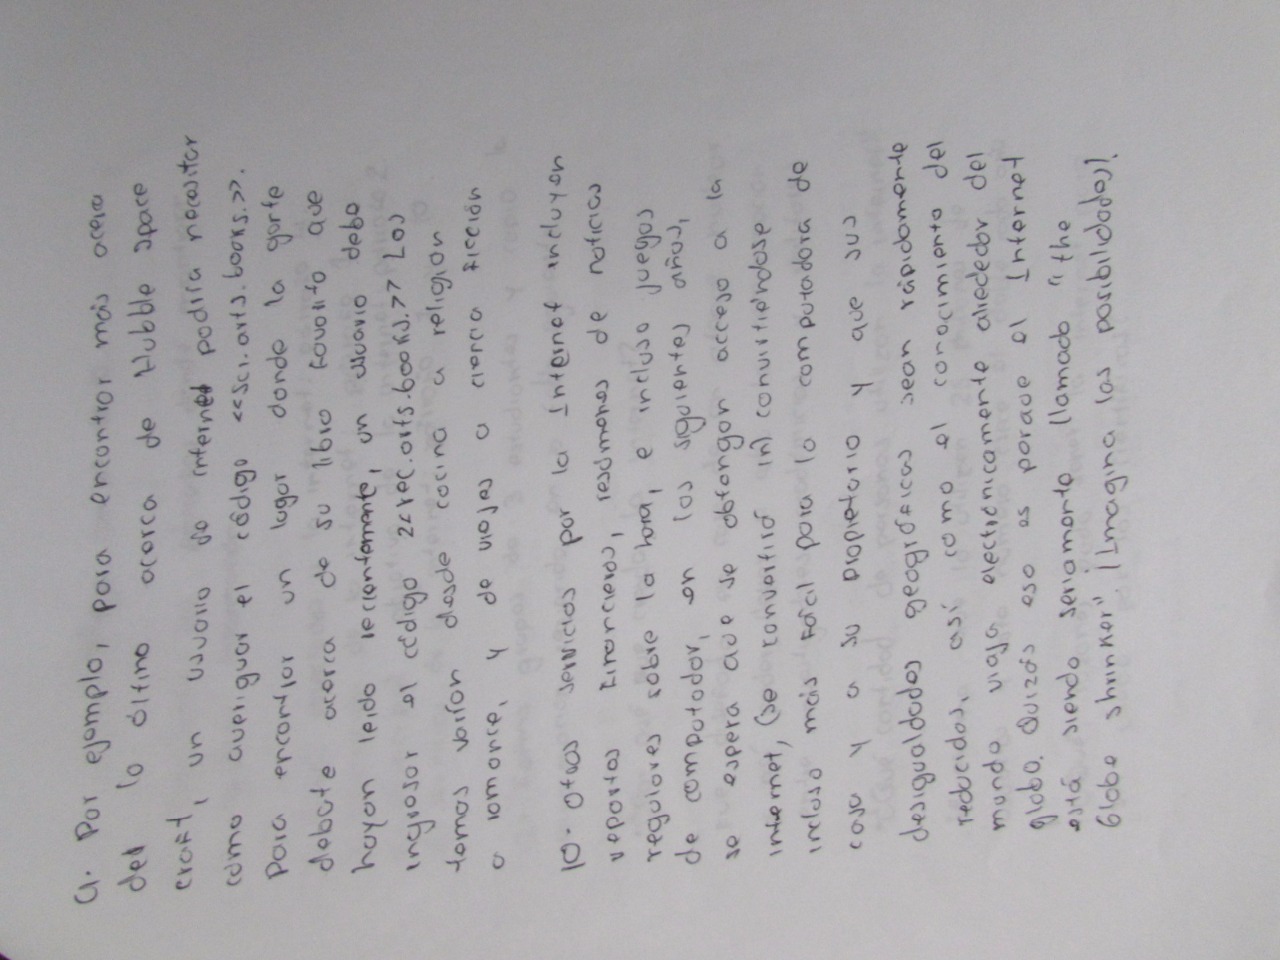 9. Por ejemplo, para encontrar más acerca
del lo último acerca de Hubble space
craft, un usuario de internet podría necesitar
como averiguar el código <<sci.arts.books.>>.
Para encontrar un lugar donde la gente
debate acerca de su libro favorito que
hayan leido recientemente, un usuario debe
ingresar el código <<rec.arts.books.>> Los
temas varían desde cocina a religion
a romance, y de viajes a ciencia ficción
10- Otros servicios por la Internet incluyen
reportes financieros, resúmenes de noticias
regulares sobre la hora, e incluso juegos
de computador, en los siguientes años,
se espera que se obtengan acceso a la
internet, (se convertirá in) convirtiéndose
incluso más fácil para la computadora de
casa y a su propietario y que sus
desigualdades geográficas sean rápidamente
reducidos, así como el conocimiento del
mundo viaja electrónicamente alrededor del
globo. Quizás eso es porque el Internet
está siendo seriamente llamado "the
Globe shrinker" ¡Imagina las posibilidades!.